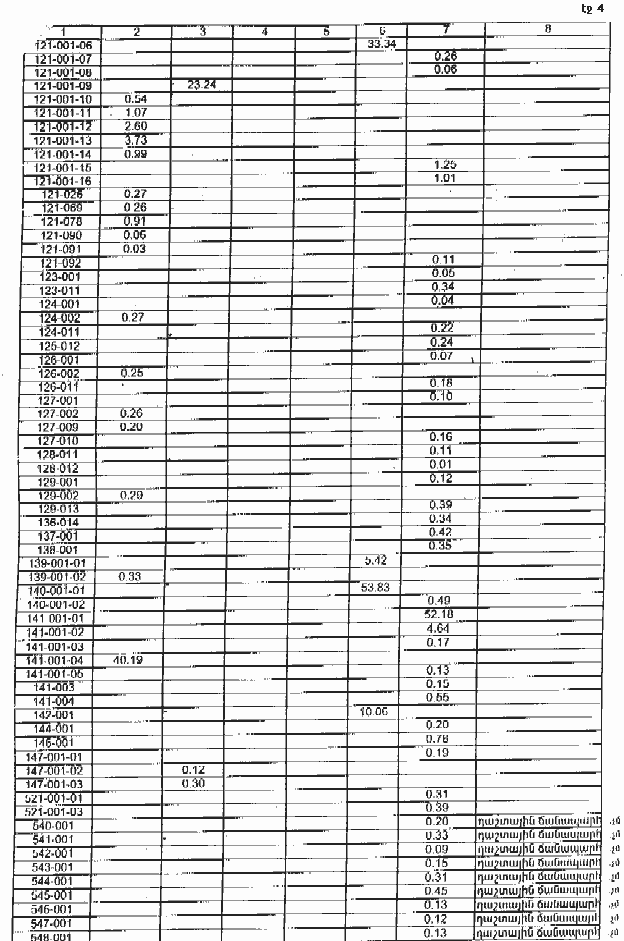 էջ 4
1 2 3 4 5 6 7 8
121-001-06 33.34
121-001-07 0.26
121-001-08 0.06
121-001-09 23.24
121-001-10 0.54
121-001-11 1.07
121-001-12 2.60
121-001-13 3.73
121-001-14 0.99
121-001-15 1.25
121-001-16 1.01
121-026 0.27
121-069 0.26
121-078 0.91
121-090 0.06
121-091 0.03
121-092 0.11
123-001 0.05
123-011 0.34
124-001 0.04
124-002 0.27
124-011 0.22
125-012 0.24
126-001 0.07
126-002 0.25
126-011 0.18
127-001 0.10
127-002 0.26
127-009 0.20
127-010 0.16
128-011 0.11
128-012 0.01
129-001 0.12
129-002 0.29
129-013 0.39
136-014 0.34
137-001 0.42
138-001 0.35
139-001-01 5.42
139-001-02 0.33
140-001-01 53.83
140-001-02 0.49
141 001-01 52.18
141-001-02 4.64
141-001-03 0.17
141-001-04 40.19
141-001-05 0.13
141-003 0.15
141-004 0.55
142-001 10.06
144-001 0.20
146-001 0.78
147-001-01 0.19
147-001-02 0.12
147-001-03 0.30
521-001-01 0.31
521-001-03 0.39
540-001 0.20 դաշտային ճանապարհ
541-001 0.33 դաշտային ճանապարհ
542-001 0.09 դաշտային ճանապարհ
543-001 0.15 դաշտային ճանապարհ
544-001 0.31 դաշտային ճանապարհ
545-001 0.45 դաշտային ճանապարհ
546-001 0.13 դաշտային ճանապարհ
547-001 0.12 դաշտային ճանապարհ
548-001 0.13 դաշտային ճանապարհ